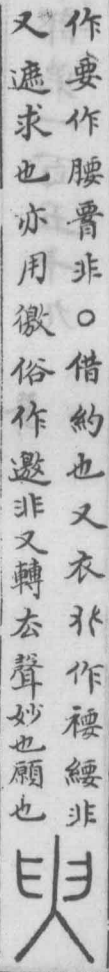 作要作腰非○借約也又衣作非
又遮求也亦用徼俗作邀非又轉去聲妙也願也